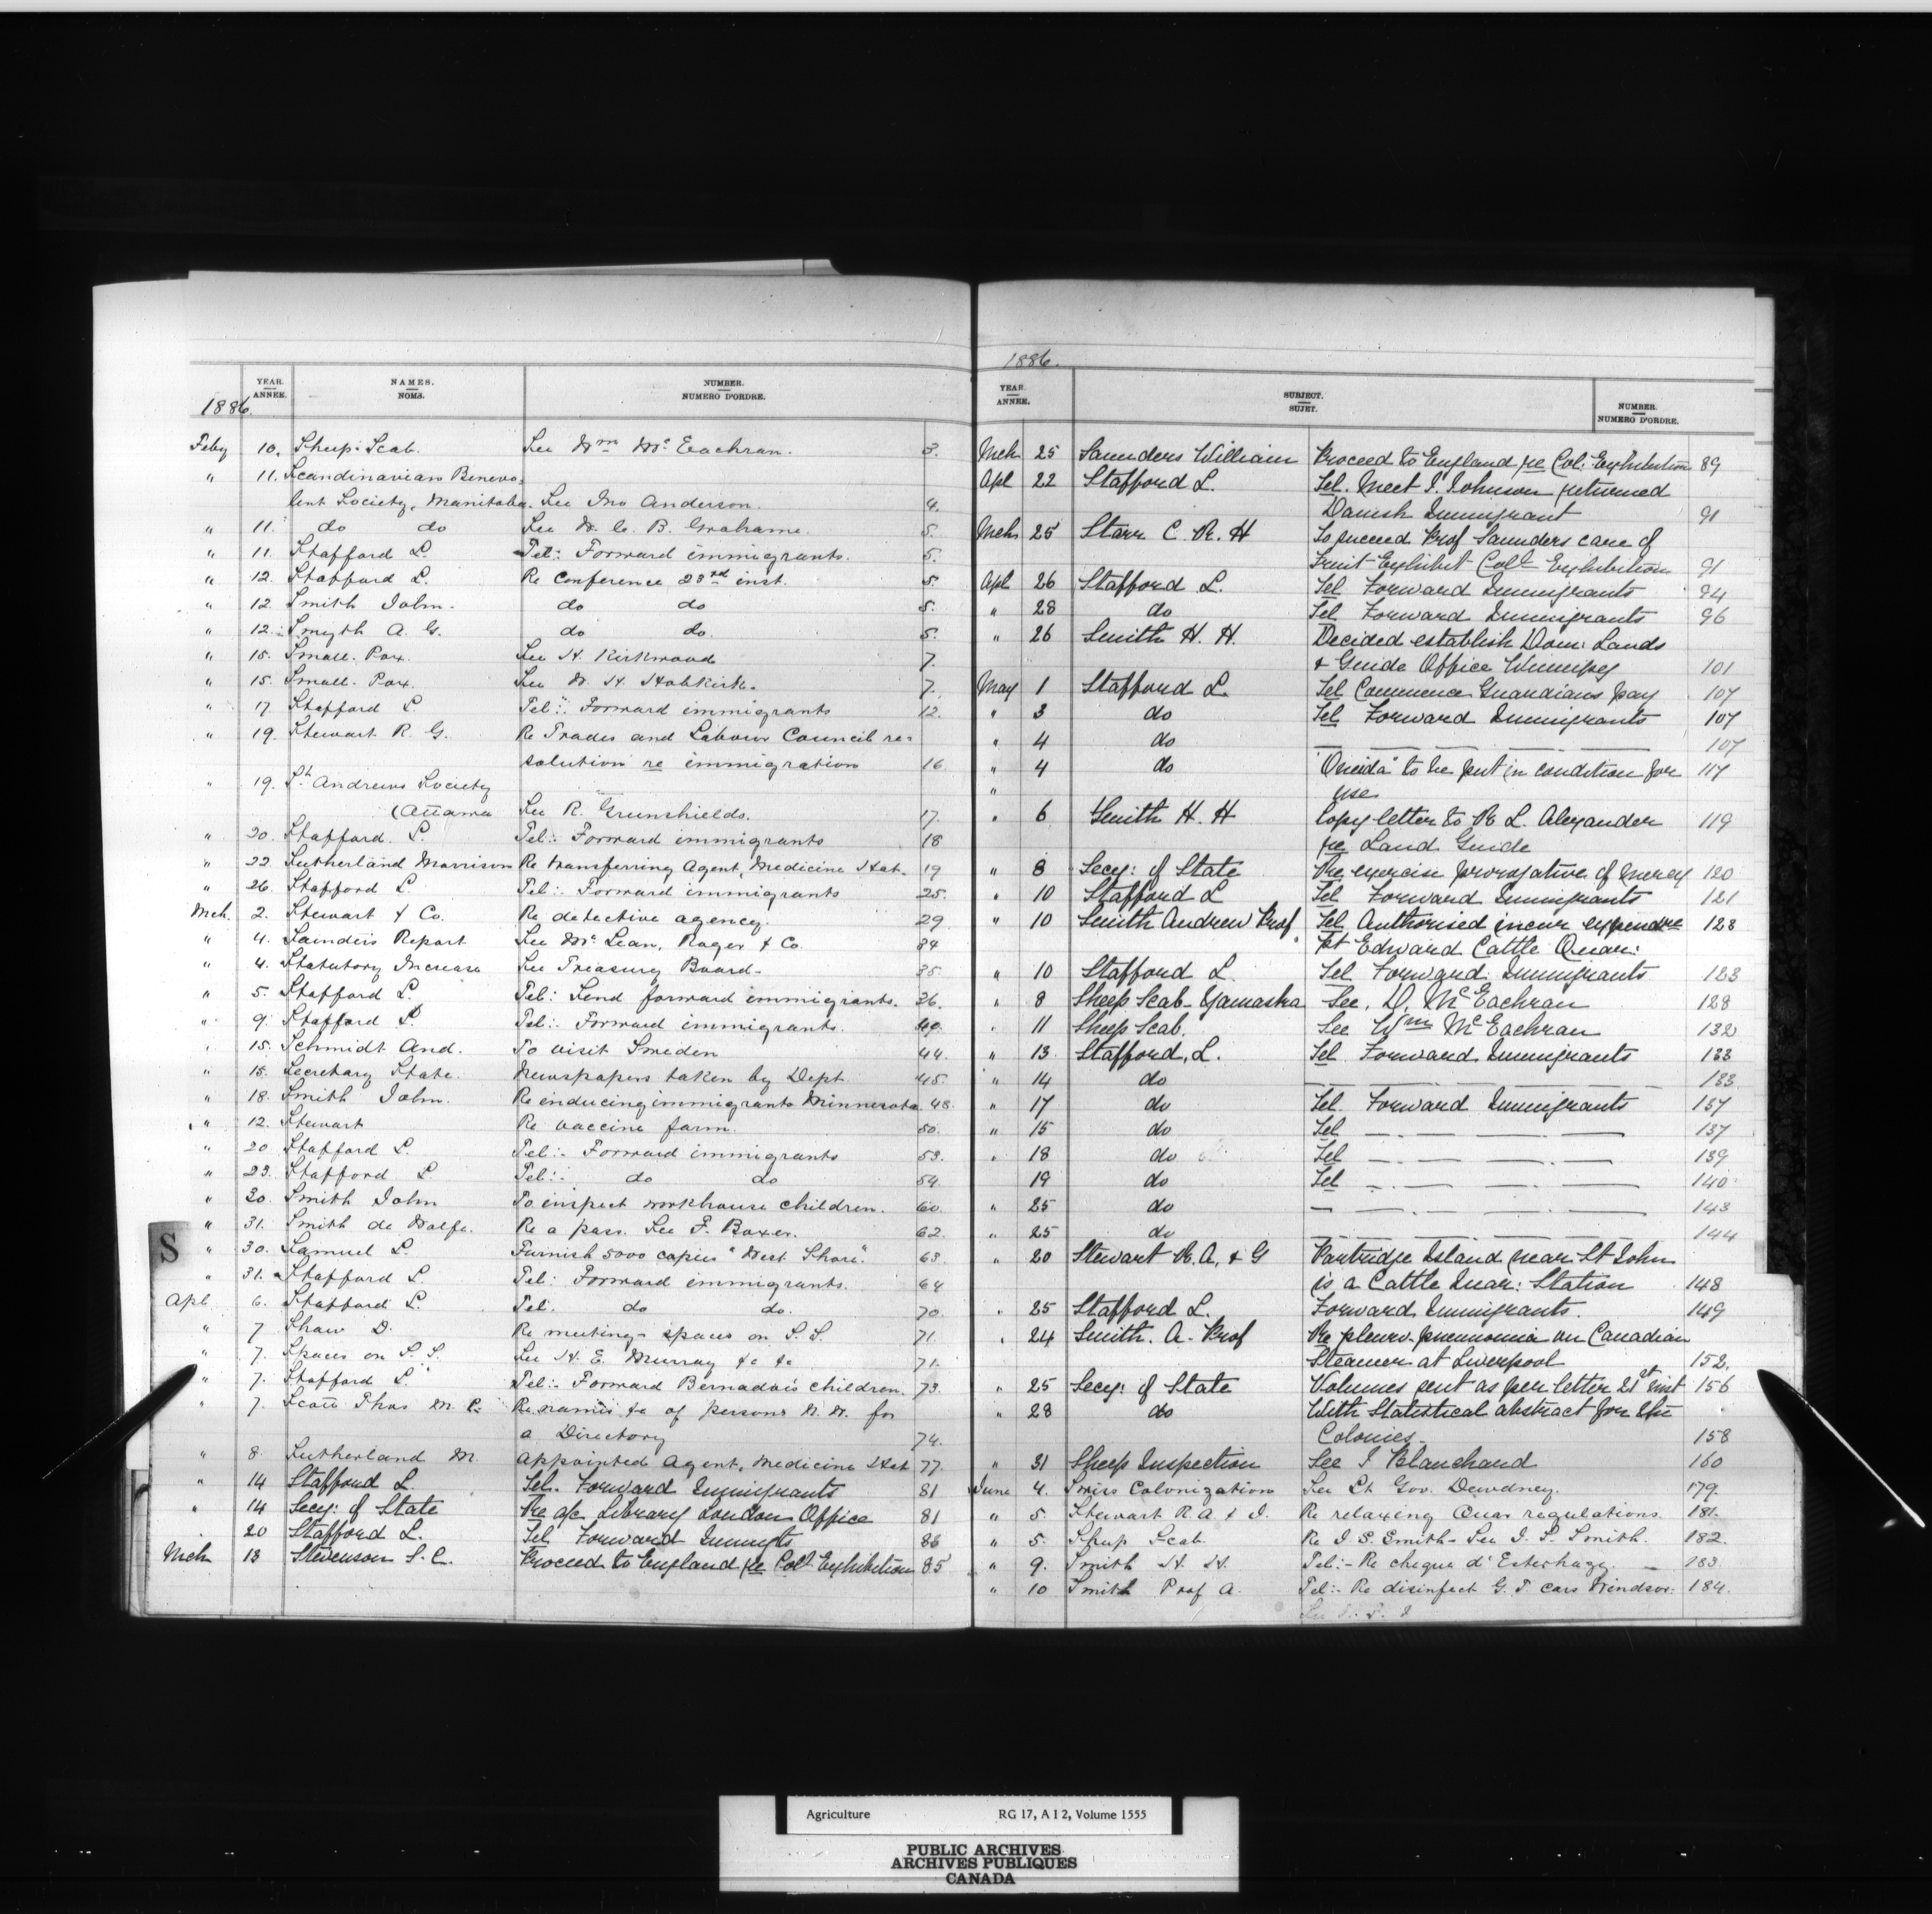 1886.
YEAR. ANNÉE. NAMES. NOMS. NUMBER. NUMERO D'ORDRE.
Feby 10. Sheep Scab. See Wm McEachran. 3.
" 11. Scandinavian Benevo-
lent Society, Manitoba. See Jno Anderson. 4.
" 11. do do See W. C. B. Grahame. 5.
" 11. Stafford L. Tel: Forward immigrants. 5.
" 12. Stafford L. Re Conference 23rd inst. 5.
" 12 Smith John. do do 5.
" 12. Smyth A. G. do do. 5.
" 15. Small-Pox. See H. Kirkwood 7.
" 15. Small-Pox. See W. H. Holkirk. 7.
" 17. Stafford L. Tel: Forward immigrants 12.
" 19. Stewart R. G. Re Trades and Labour Council re-
solution re immigration 16.
" 19. St. Andrews Society
(Ottawa See R. Greenshields. 17.
" 20. Stafford L. Tel:- Forward immigrants 18
" 22. Sutherland Morrison Re transferring Agent, Medicine Hat. 19
" 26. Stafford L. Tel:- Forward immigrants 25.
Mch. 2. Stewart & Co. Re detective agency. 29
" 4. Saunders Report See McLean, Roger & Co. 34
" 4. Statutory Increase See Treasury Board- 35.
" 5. Stafford L. Tel: Send forward immigrants. 36.
" 9. Stafford L. Tel:- Forward immigrants. 40.
" 15. Schmidt And. To visit Sweden 44.
" 15. Secretary State. Newspapers taken by Dept. 45.
" 18. Smith John. Re inducing immigrants Minnesota. 48.
" 12. Stewart Re vaccine farm. 50.
" 20 Stafford L. Tel:- Forward immigrants 53.
" 23. Stafford L Tel:- do do 54.
" 30. Smith John To inspect workhouse children. 60.
" 31. Smith de Wolfe. Re a pass. See F. Boxer. 62.
S
" 30. Samuel L. Furnish 5000 copies "West Shore". 63.
" 31. Stafford L. Tel: Forward immigrants. 64
Apl. 6. Stafford L. Tel. do do. 70.
" 7 Shaw D. Re meeting- spaces on S.S. 71.
" 7. Spaces on S.S. See H. E. Murray &c &c 71.
" 7. Stafford L. Tel:- Forward Bernado's children. 73.
" 7. Scott Thos M.P. Re names &c of persons N.W. for
a Directory 74.
" 8. Sutherland M. Appointed Agent, Medicine Hat 77.
" 14 Stafford L. Tel. Forward Immigrants 81
" 14 Secy: of State Re a/c Library London Office 81
20 Stafford L. Tel Forward Immgts 86
Mch 13 Stevenson S. C. Proceed to England re Col Exhibition 85
1886.
YEAR. ANNÉE. SUBJECT. SUJET. NUMBER. NUMERO D'ORDRE.
Mch 25 Saunders William Proceed to England re Col. Exhibition 89
Apl 22 Stafford L. Tel. Meet J. Johnson returned
Danish Immigrant 91
Mch 25 Starr C. R. H To succeed Prof Saunders care of
Fruit Exhibit Coll Exhibition 91
Apl 26 Stafford L. Tel Forward Immigrants 94
" 28 do Tel Forward Immigrants 96
" 26 Smith H. H. Decided establish Dom: Lands
& Guide Office Winnipeg 101
May 1 Stafford L. Tel Commence Guardians pay 107
" 3 do Tel Forward Immigrants 107
" 4 do 107
" 4 do "Oneida" to be put in condition for 117
" use
" 6 Smith H. H Copy letter to R L. Alexander 119
re Land Guide
" 8 Secy: of State Re exercise prerogative of mercy 120
" 10 Stafford L Tel Forward Immigrants 121
" 10 Smith Andrew Prof Tel Authorised incur expendre 128
Pt Edward Cattle Quar:
" 10 Stafford L. Tel Forward Immigrants 123
" 8 Sheep Scab- Yamaska See. D. McEachran 128
" 11 Sheep Scab. See Wm McEachran 132
" 13 Stafford, L. Tel Forward Immigrants 133
" 14 do 133
" 17 do Tel. Forward Immigrants 137
" 15 do Tel 137
" 18 do Tel 139
19 do Tel 140
" 25 do 143
" 25 do 144
" 20 Stewart R. A. & G Partridge Island near St John
is a Cattle Quar: Station 148
" 25 Stafford L. Forward Immigrants. 149
" 24 Smith. A. Prof Re pleuro-pneumonia on Canadian
Steamer at Liverpool 152.
" 25 Secy: of State Volumes sent as per letter 21st inst 156
" 28 do With Statistical abstract for the
Colonies. 158
" 31 Sheep Inspection See J Blanchard 160
June 4. Swiss Colonization See Lt Gov. Dewdney. 179.
" 5. Stewart R. A. & J. Re relaxing Quar regulations. 181.
" 5. Sheep Scab. Re J. S. Smith- See J. S. Smith. 182.
" 9. Smith H. H. Tel:- Re cheque d'Esterhazy. 183.
" 10 Smith Prof A. Tel:- Re disinfect G. T. cars Windsor. 184.
Agriculture RG 17, A I 2, Volume 1555
PUBLIC ARCHIVES
ARCHIVES PUBLIQUES
CANADA